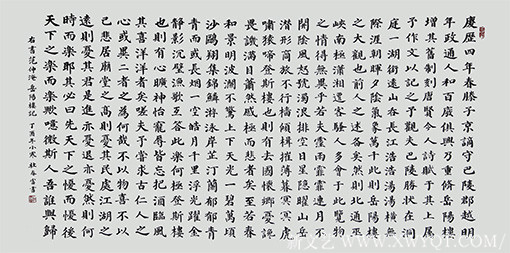 慶歷四年春滕子京謫守巴陵郡越明
年政通人和百廢俱興乃重修岳陽樓
增其舊制刻唐賢今人詩賦于其上屬
予作文以記之予觀夫巴陵勝狀在洞
庭一湖銜遠山吞長江浩浩湯湯橫無
際涯朝暉夕陰氣象萬千此則岳陽樓
之大觀也前人之述备矣然則北通巫
峽南極瀟湘遷客騷人多會于此覽物
之情得無異乎若夫霪雨霏霏連月不
開陰風怒號濁浪排空日星隱曜山岳
潛形商旅不行檣傾楫摧薄暮冥冥虎
嘯猿啼登斯樓也則有去國懷鄉憂讒
畏譏滿目蕭然感極而悲者矣至若春
和景明波瀾不驚上下天光一碧萬頃
沙鷗翔集錦鱗游泳岸芷汀蘭郁郁青
青而或長煙一空皓月千里浮光躍金
靜影沉璧漁歌互答此樂何極登斯樓
也則有心曠神怡寵辱皆忘把酒臨風
其喜洋洋者矣嗟夫予嘗求古仁人之
心或異二者之為何哉不以物喜不以
己悲居廟堂之高則憂其民處江湖之
遠則憂其君是進亦憂退亦憂然則何
時而樂耶其必曰先天下之憂而憂後
天下之樂而樂歟噫微斯人吾誰與歸
右書范仲淹岳陽樓記 丁酉年小寒 書
WWW.XWYQT.COM